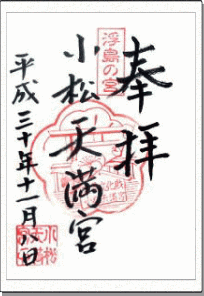 奉拝
浮島の宮
小松天満宮
平成三十年十一月八日
小松天満宮